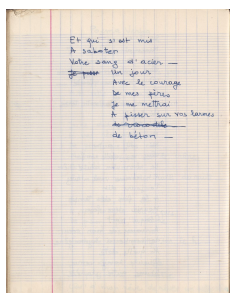 Et qui s'est mis
A saboter
Votre sang d'acier —
Je pisse un jour
Avec le courage
De mes pères
Je me mettrai
A pisser sur vos larmes
de crocodile
de béton —